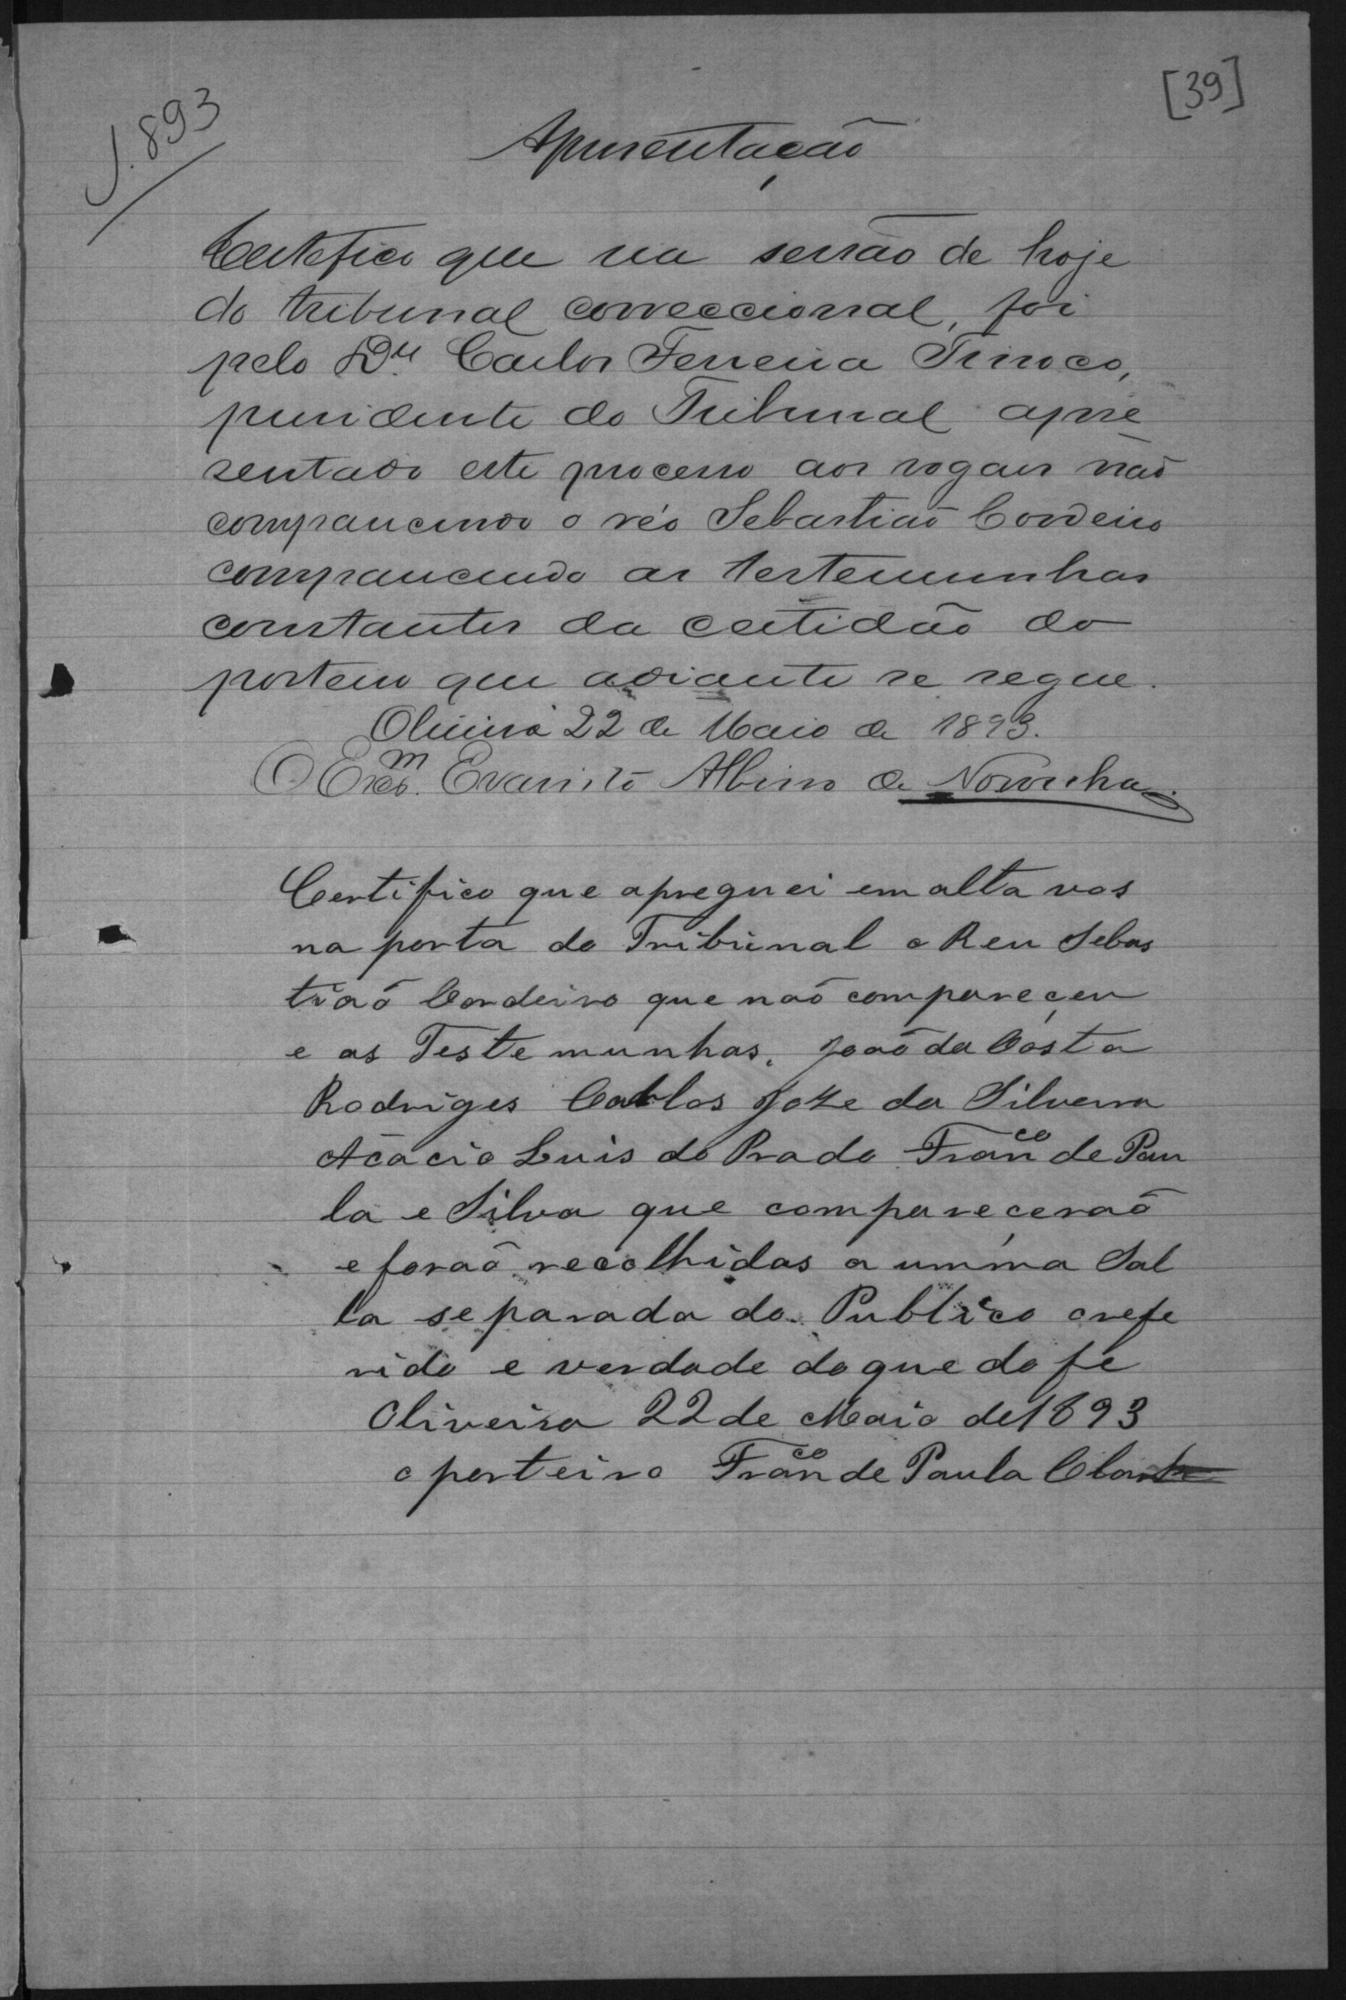 J. 893
[39]
Apresentação
Certefico que na sessão de hoje
do tribunal correccional, foi
pelo Dr. Carlos Ferreira Tinoco,
presidente do Tribunal apre
sentado este processo aos vogaes não
comparecendo o réo Sebastião Cordeiro
comparecendo as testemunhas
constantes da certidão do
porteiro que adiante se segue.
Oliveira 22 de Maio de 1893.
O Escm. Evaristo Albino de Noronha.
Certifico que apreguei em alta vos
na porta do Tribunal o Reu Sebas
tiaõ Cordeiro que naõ compareçeu
e as Testemunhas. Joaõ da Costa
Rodriges Carlos Joze da Silveira
Acacio Luis do Prado Franco de Pau
la e Silva que compareçeraõ
e foraõ recolhidas a umma Sal
la separada do Publico o refe
rido e verdade do que do fé
Oliveira 22 de Maio de 1893
o porteiro Franco de Paula